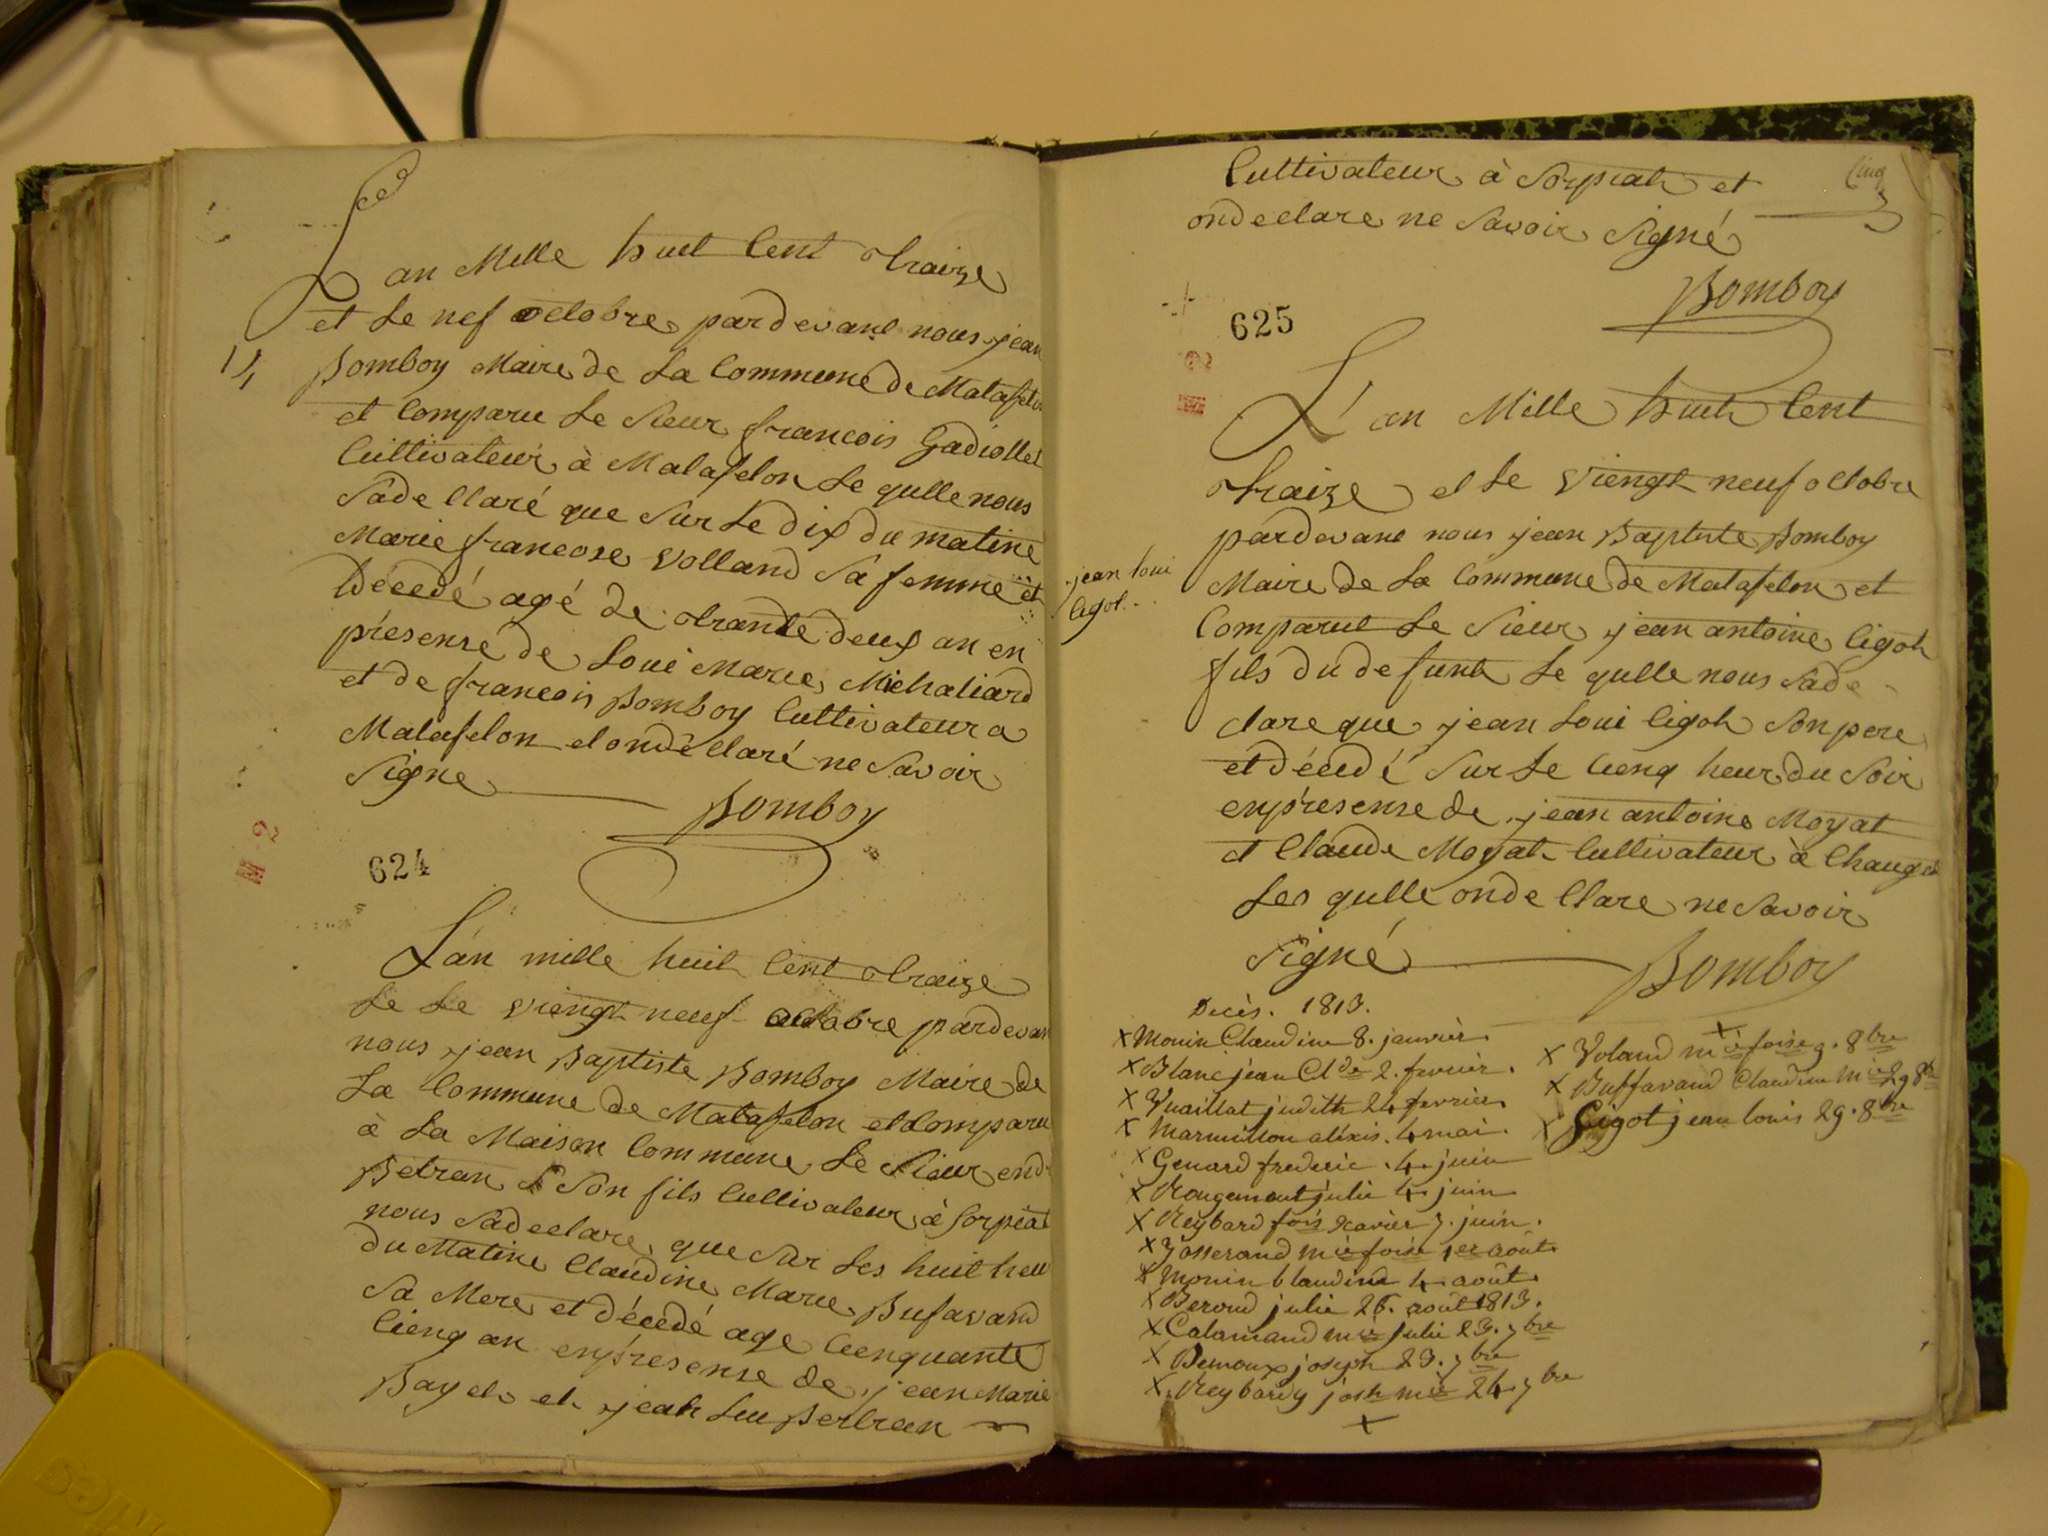 L'an Mille huit Cent traize
et le nef octobre pardevant nous jean
14 Bomboy Maire de La Commune de Matafelon
et Comparu Le Sieur francois Gadiollet
Cultivateur à Matafelon Le qulle nous
Sade Claré que Sur Le dix du matine
Marie francose Volland Sa femme et
Décedé agé de trante deux an en
présense de Loui Marie Michaliard
et de francois Bomboy Cultivateur a
Matafelon et ondéClaré ne Savoir
Signe
Bomboy
624
L'an mille huit Cent traize
Le Le viengt neuf octobre pardevan
nous jean Baptiste Bomboy Maire de
La Commune de Matafelon et Comparu
à La Maison Commune Le Sieur
Betran Son fils Cultivateur à Sorpiat
nous Sadeclare que Sur Les huit heu
du Matine Claudine Marie Bufavand
Sa Mere et décedé age Cienquante
Cienq an enprésense de jean Marie
Bayet et jean Bertran
Cultivateur à Sorpiat et
ondeclare ne Savoir Signé
Cinq
Bomboy
625
L'an Mille huit Cent
traize et Le viengt neuf octobre
pardevant nous jean Baptiste Bomboy
jean loui
Cigot
Maire de La Commune de Matafelon et
Comparut Le Sieur jean antoine Cigot
fils du defunt Le qulle nous Sade
Clare que jean Loui Cigot Son pere
et décedé Sur Le Cienq heur du Soir
enprésense de jean antoine Moyat
et Claude Moyat Cultivateur à Chaug
Les qulle onde Clare ne Savoir
Signé
Bomboy
Décès. 1813.
x Monin Claudine 8. janvier.
x Blanc jean Clde 2. fevrier.
x Vuaillat judith 24 fevrier
x Marmillon aléxis. 4 mai.
x Genard frederic. 4. juin
x Rougemont julie 4. juin
x Reybard fois xavier 7. juin.
x Josserand mie foise 1er août
x Monin Claudine 4. août.
x Beroud julie 26. août 1813.
x Calamand mie julie 23. 7bre
x Demoux joseph 23. 7bre
x Reybardy josh mie 24 7bre
x
x Voland mie foise 9. 8bre
x Buffavand Claudine mie 29 8bre
x Cigot jean louis 29. 8bre